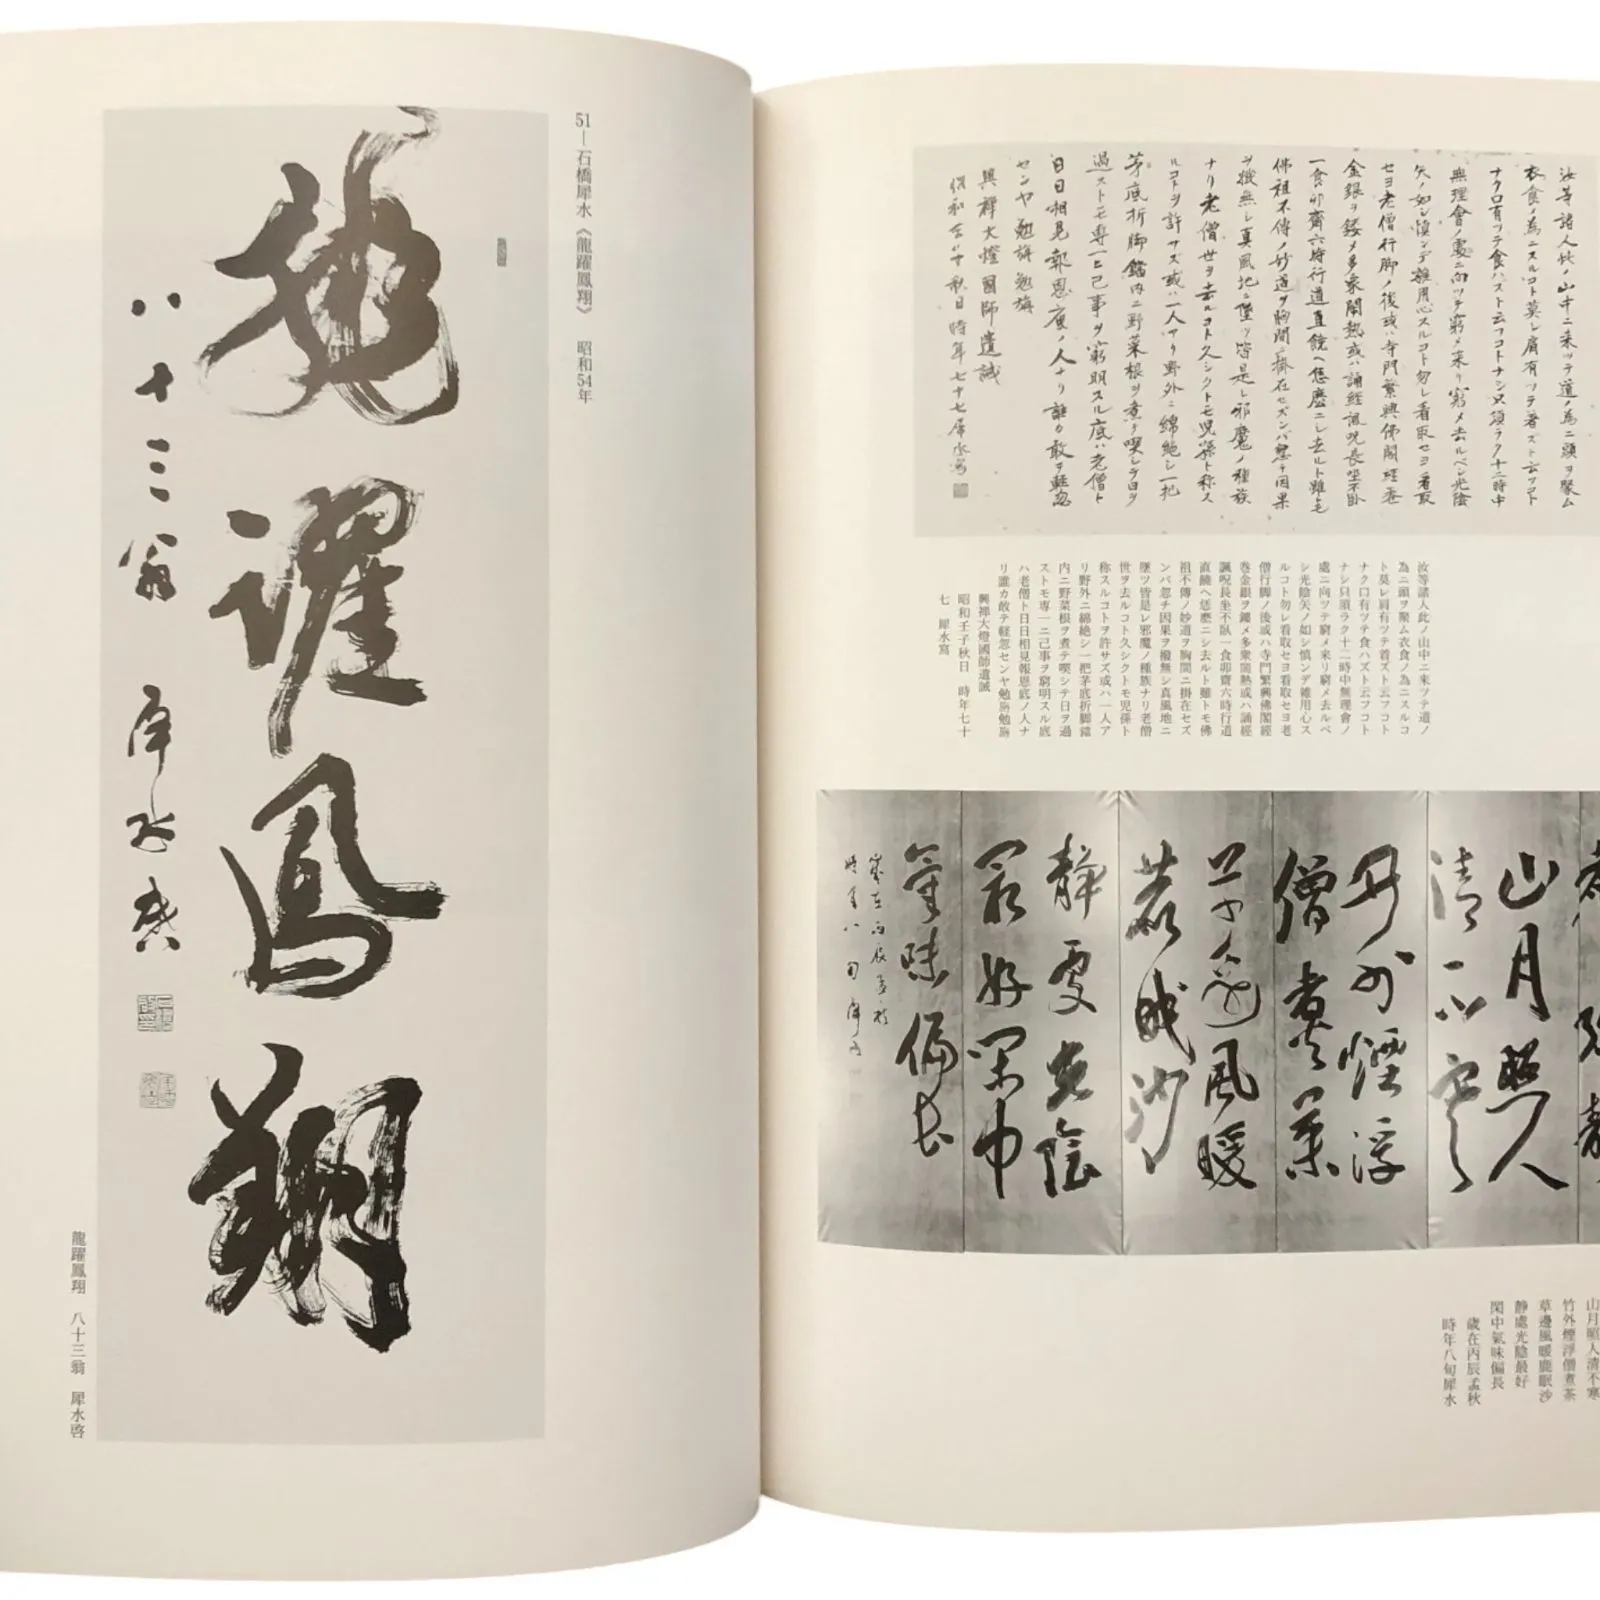 汝等諸人此ノ山中ニ来ツテ道ノ為ニ頭ヲ聚ム
衣食ノ為ニスルコト莫レ肩有ツテ着ズト云フコト
ナク口有ツテ食ハズト云フコトナシ只須ラク十二時中
無理會ノ處ニ向ツテ窮メ来リ窮メ去ルベシ光陰
矢ノ如シ慎ンデ雜用心スルコト勿レ看取セヨ看取
セヨ老僧行脚ノ後或ハ寺門繁興佛閣経巻
金銀ヲ鏤メ多衆閙熱或ハ誦経諷呪長坐不臥
一食卯齋六時行道直饒ヘ恁麼ニシ去ルト雖トモ
佛祖不傳ノ妙道ヲ胸間ニ掛在セズンバ忽チ因果
ヲ撥無シ真風地ニ墜ツ皆是レ邪魔ノ種族
ナリ老僧世ヲ去ルコト久シクトモ児孫ト称ス
ルコトヲ許サズ或ハ一人アリ野外ニ綿絶シ一把
茅底折脚鐺内ニ野菜根ヲ煮テ喫シテ日ヲ
過ストモ専一ニ己事ヲ窮明スル底ハ老僧ト
日日相見報恩底ノ人ナリ誰カ敢テ軽忽
センヤ勉旃勉旃
興禅大燈國師遺誡
昭和壬子秋日時年七十七犀水寫
汝等諸人此ノ山中ニ来ツテ道ノ
為ニ頭ヲ聚ム衣食ノ為ニスルコ
ト莫レ肩有ツテ着ズト云フコト
ナク口有ツテ食ハズト云フコト
ナシ只須ラク十二時中無理會ノ
處ニ向ツテ窮メ来リ窮メ去ルベ
シ光陰矢ノ如シ慎ンデ雜用心ス
ルコト勿レ看取セヨ看取セヨ老
僧行脚ノ後或ハ寺門繁興佛閣經
巻金銀ヲ鏤メ多衆閙熱或ハ誦經
諷呪長坐不臥一食卯齋六時行道
直饒ヘ恁麼ニシ去ルト雖トモ佛
祖不傳ノ妙道ヲ胸間ニ掛在セズ
ンバ忽チ因果ヲ撥無シ真風地ニ
墜ツ皆是レ邪魔ノ種族ナリ老僧
世ヲ去ルコト久シクトモ児孫ト
称スルコトヲ許サズ或ハ一人ア
リ野外ニ綿絶シ一把茅底折脚鐺
内ニ野菜根ヲ煮テ喫シテ日ヲ過
ストモ専一ニ己事ヲ窮明スル底
ハ老僧ト日日相見報恩底ノ人ナ
リ誰カ敢テ軽忽センヤ勉旃勉旃
興禅大燈國師遺誡
昭和壬子秋日 時年七十
七 犀水寫
山月照人
清不寒
竹外煙浮
僧煮茶
草邊風暖
鹿眠沙
静處光陰
最好閑中
氣味偏長
歳在丙辰孟秋
時年八旬犀水
山月照人清不寒
竹外煙浮僧煮茶
草邊風暖鹿眠沙
静處光陰最好
閑中氣味偏長
歳在丙辰孟秋
時年八旬犀水
51—石橋犀水《龍躍鳳翔》 昭和54年
龍躍鳳翔
八十三翁 犀水啓
龍躍鳳翔 八十三翁 犀水啓